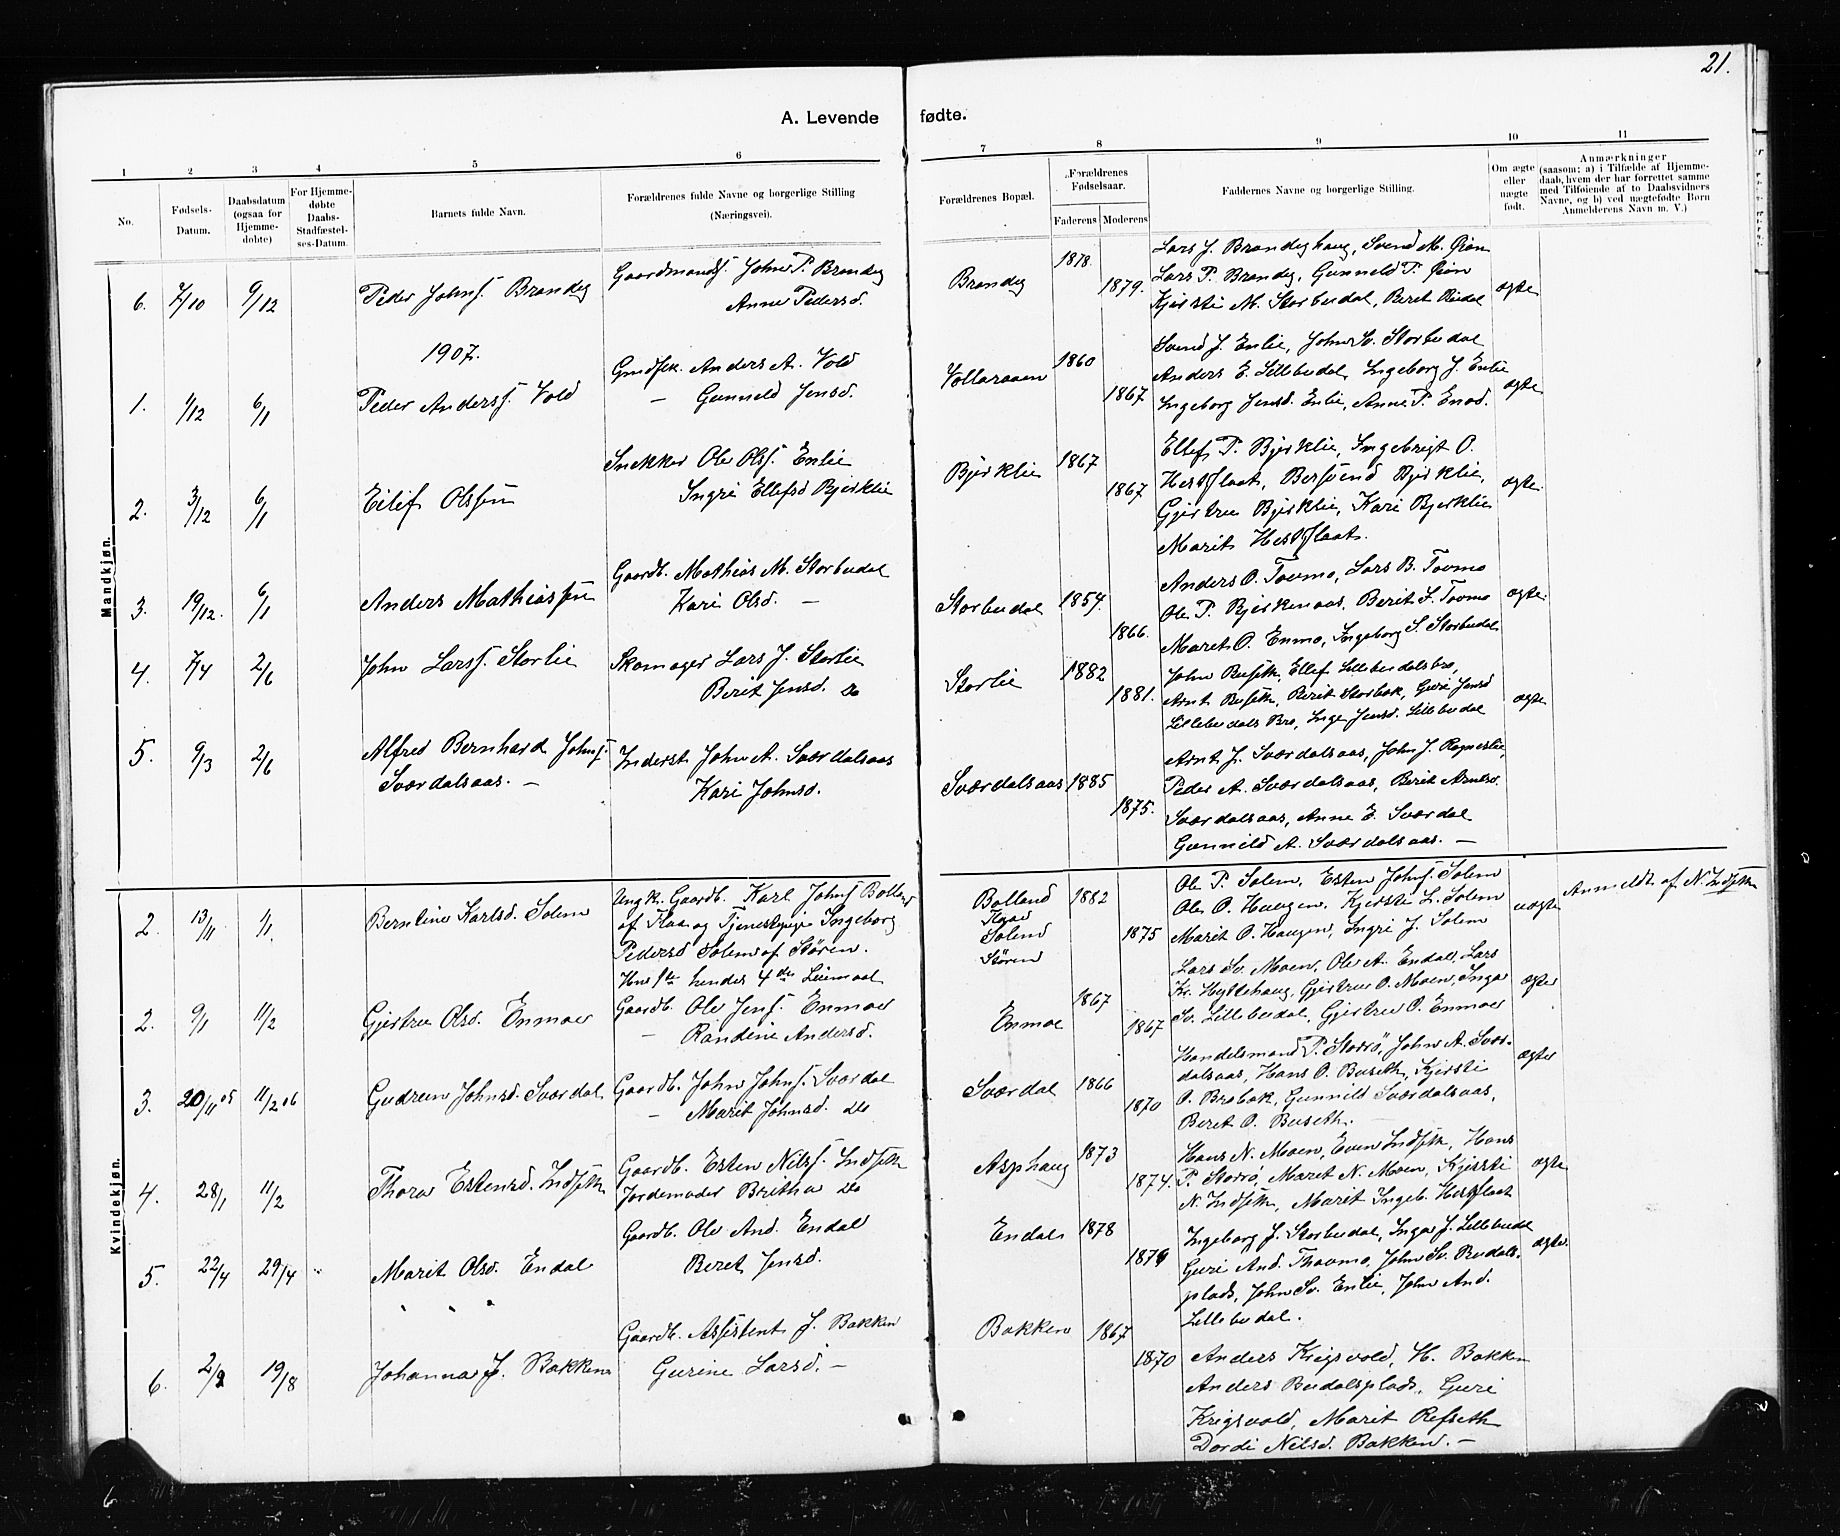 21.
A. Levende fødte.
1 2 3 4 5 6 7 8 9 10 11
No.
Fødsels-
Datum.
Daabsdatum
(ogsaa for
Hjemme-
døbte)
For Hjemme-
døbte
Daabs-
Stadfæstel-
ses-Datum.
Barnets fulde Navn.
Forældrenes fulde Navne og borgerlige Stilling
(Næringsvei).
Forældrenes Bopæl.
Forældrenes
Fødselsaar.
Faderens Moderens
Faddernes Navne og borgerlige Stilling.
Om ægte
eller
uægte
født.
Anmærkninger
(saasom: a) i Tilfælde af Hjemme-
daab, hvem der har forrettet samme
med Tilføiende af to Daabsvidners
Navne, og b) ved uægtefødte Børn
Anmelderens Navn m. V.)
Mandkjøn.
6. 7/10 9/12 Peder Johns. Brandeg
Gaardmands. John P. Brandeg
Anne Pedersd.
Brandeg 1878. 1879.
Lars J. Brandeghaug, Svend M. Øien
Lars P. Brandeg, Gunneld P. Øien
Kjersti M. Storbudal, Beret Budal
ægte
1907.
1. 1/12 6/1 Peder Anders. Vold
Gmdsk. Anders A. Vold
— Gunneld Jensd.
Vollaraaen 1860 1867
Svend J. Enlie, John Sv. Storbudal
Anders E. Lillebudal, Ingeborg J. Enlie
Ingeborg Jensd. Enlie, Anne P. Enod.
ægte
2. 3/12 6/1 Eilef Olssen
Snekker Ole Ols. Enlie
Ingri Ellefsd Bjerklie
Bjerklie 1867 1867
Ellef P. Bjerklie, Ingebrigt O.
Hestflaat, Bersvend Bjerklie,
Gjertru Bjerklie, Kari Bjerklie
Marit Hestflaat.
ægte.
3. 19/12. 6/1 Anders Mathiassen
Gaardb. Mathias M. Storbudal
Kari Olsd. —
Storbudal 1854. 1866.
Anders O. Tovmo, Lars B. Tovmo
Ole P. Bjerkenaas, Berit S. Tovmo
Maret O. Enmo, Ingeborg S. Storbudal
ægte.
4. 7/4 2/6 John Larss. Storlie
Skomager Lars J. Storlie
Berit Jensd. do
Storlie 1882 1881.
John Buseth, Ellef Lillebudalsbro,
Arnt Buseth, Berit Storbæk, Guri Jensd
Lillebudals Bro, Inge Jensd. Lillebudal
ægte
5. 9/3 2/6 Alfred Bernhard Johns.
Sværdalsaas. —
Inderst John A. Sværdalsaas
Kari Johnsd.
Sværdalsaas 1885 1875.
Arnt J. Sværdalsaas, John J. Rogneslie,
Peder A. Sværdalsaas, Berit Arntsd.
Sværdalsaas, Anne E. Sværdal
Gunnild A. Sværdalsaas. —
Kvindekjøn.
2. 13/11 1/1. Berntine Karlsd. Solem
Ungk. Gaardb. Karl Johns Bolland
af Flaa og Tjenestepige Ingeborg
Pedersd Solem af Støren.
Hans 1ste hendes 4de Leiermaal
Bolland
Flaa
Solem
Støren
1882 1875
Ole P. Solem, Esten Johns. Solem
Ole O. Haugen, Kjersti L. Solem
Marit O. Haugen, Ingri J. Solem
uægte
Anmeldt af N. Indseth
2. 9/1 11/2 Gjertru Olsd. Enmoe
Gaardb. Ole Jens. Enmoe
— Randine Andersd.
Enmoe 1867 1867
Lars Sv. Moen, Ole A. Endal, Lars
Kr. Hyttehaug, Gjertru O. Moen, Inga
Sv. Lillebudal, Gjertru O. Enmoe
ægte
3. 20/11 05 11/2 06 Gudrun Johnsd. Sværdal
Gaardb. John Johns. Sværdal
— Marit Johnsd. do
Sværdal 1866 1870
Handelsmand P. Storrø, John A. Svær-
dalsaas, Hans O. Buseth, Kjersti
O. Brobæk, Gunnild Sværdalsaas,
Beret O. Buseth.
ægte
4. 28/1 11/2 Thora Estensd. Indseth
Gaardb. Esten Nilss. Indseth
Jordemoder Britha do
Asphaug 1873 1874.
Hans N. Moen, Even Indseth, Hans
P. Storrø, Maret N. Moen, Kjersti
N. Indseth, Marit Ingeb. Hestflaat
ægte
5. 22/4 29/4 Marit Olsd. Endal
Gaardb. Ole And. Endal
Beret Jensd.
Endal 1878 1876
Ingeborg J. Storbudal, Inga J. Lillebudal
Guri And. Thovmo, John Sv. Budals-
plads, John Sv. Enlie, John And.
Lillebudal.
ægte.
6. 2/2 19/8 Johanna J. Bakken
Gaardb. Assistent J. Bakken
Gurine Larsd. —
Bakken 1867 1870
Anders Krigsvold, H. Bakken
Anders Budalsplads, Guri
Krigsvold, Marit Refseth
Dordi Nilsd. Bakken. —
6